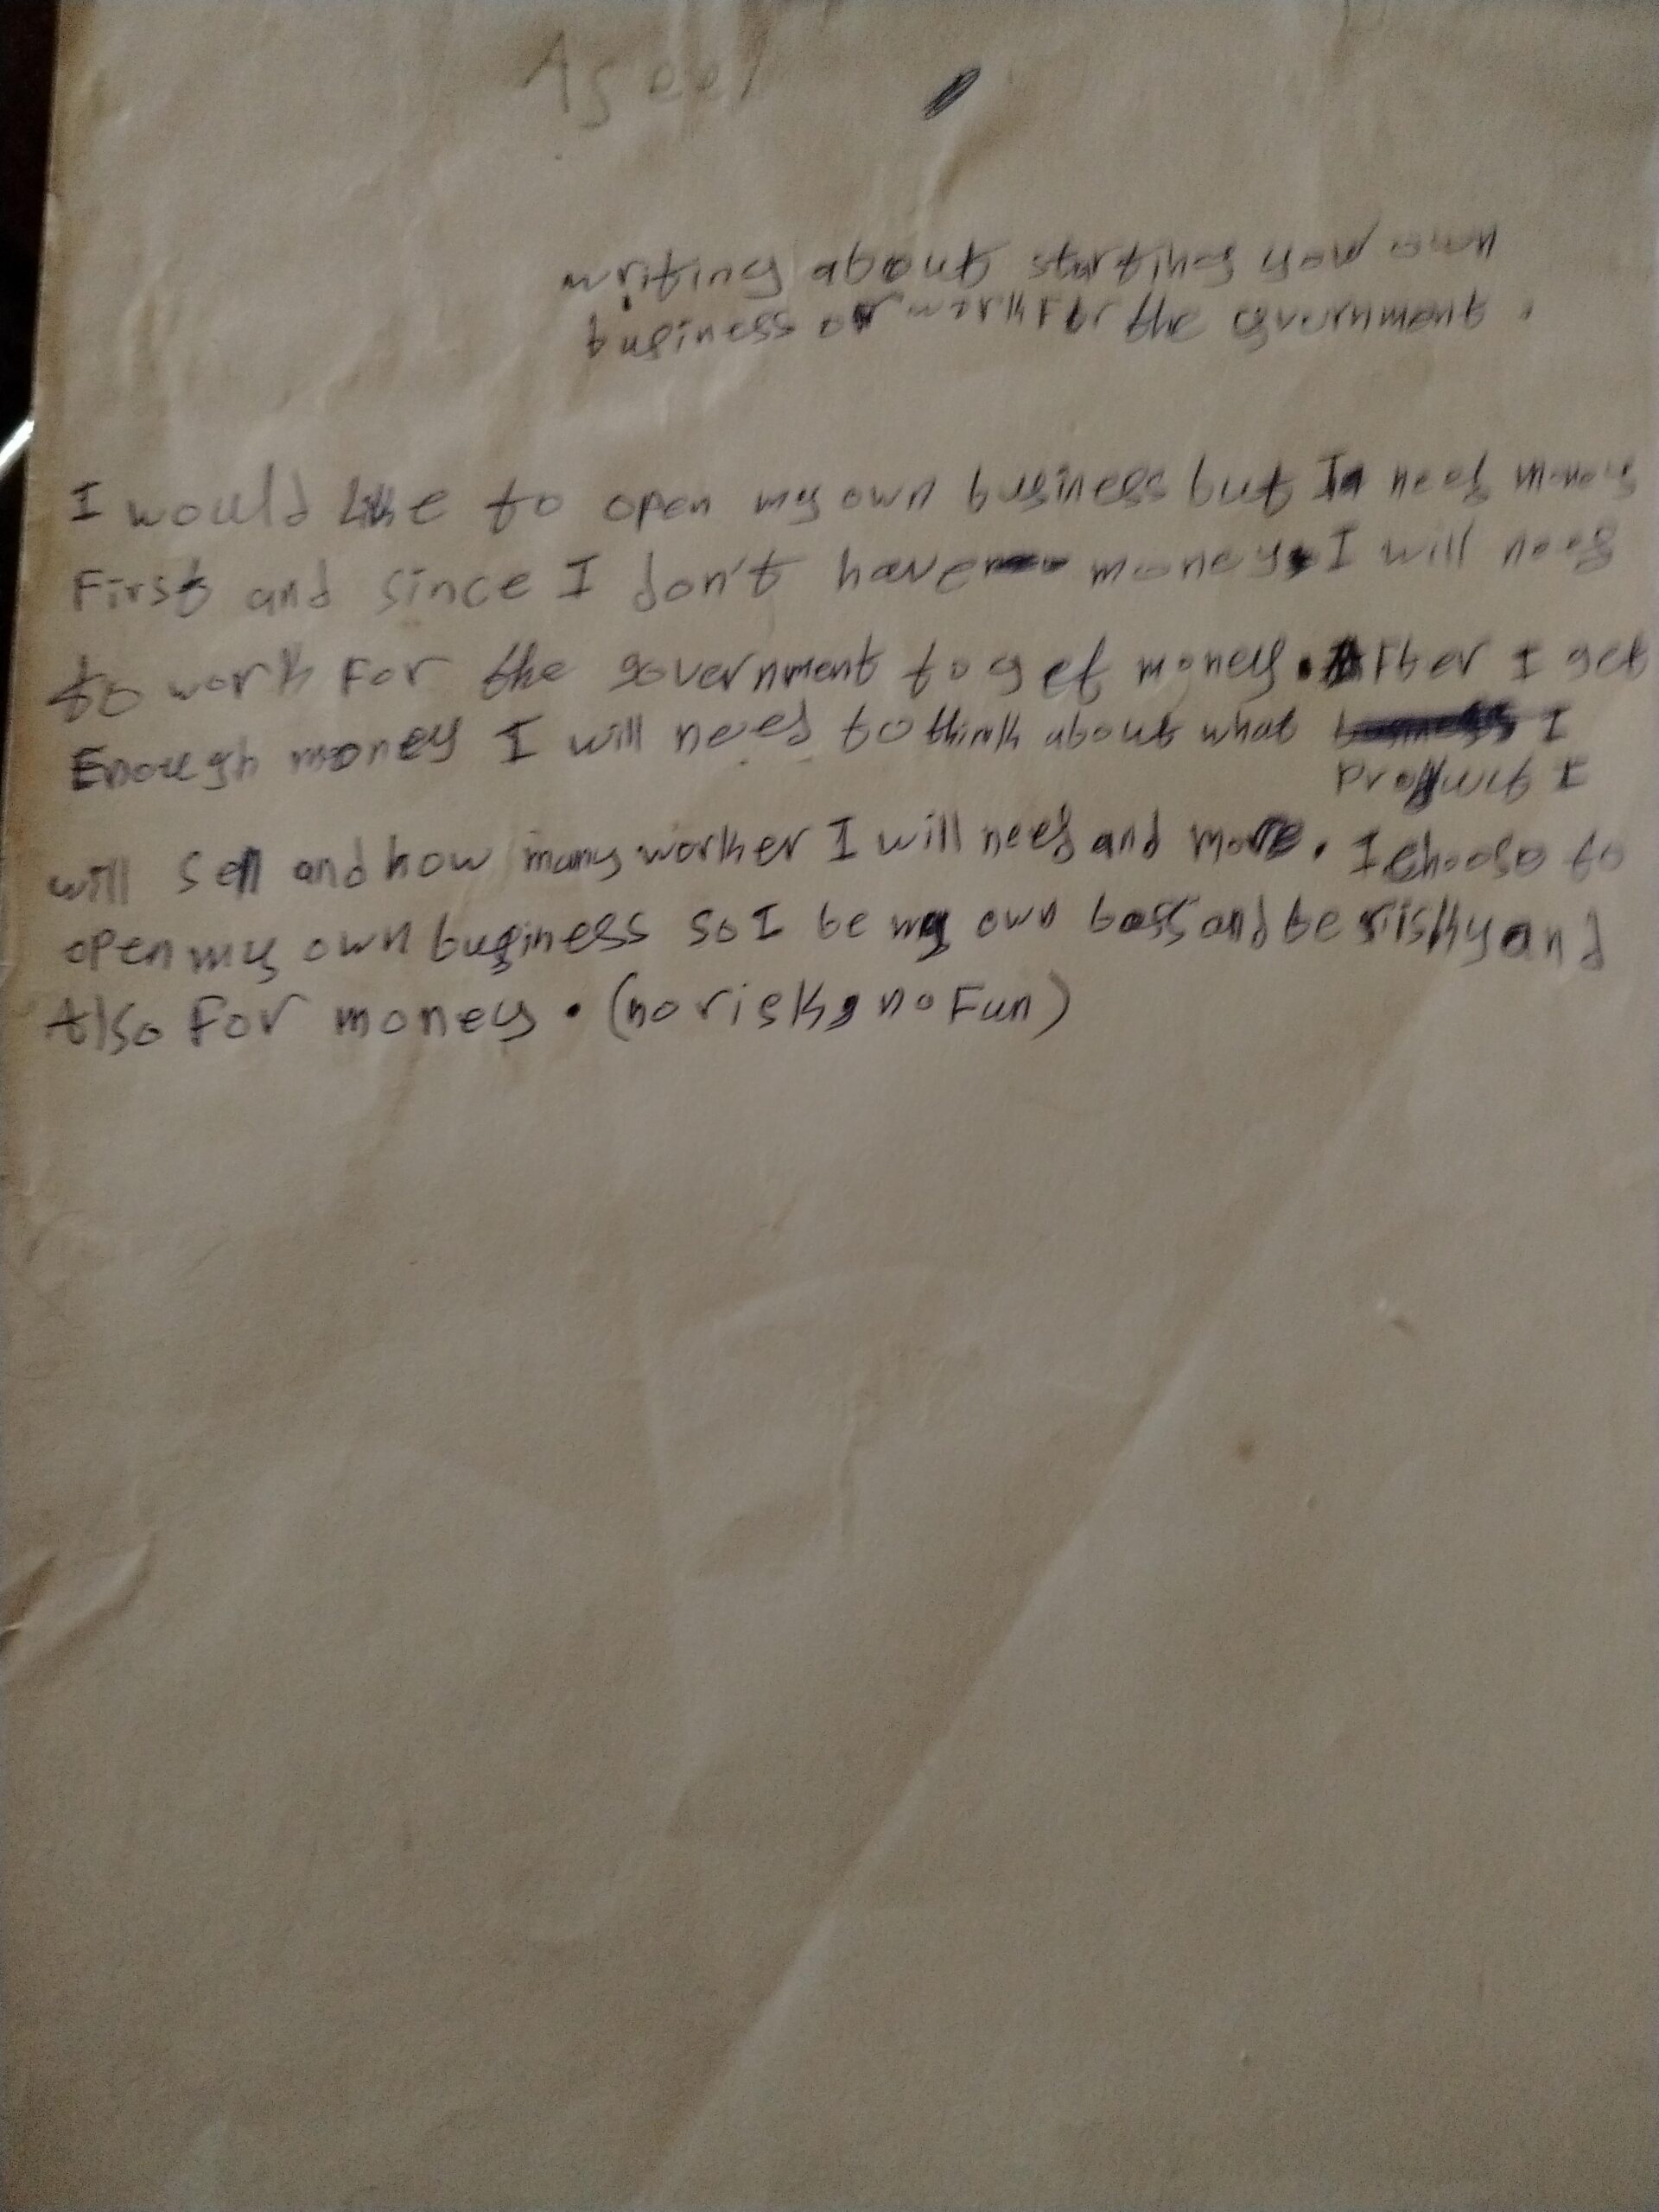 Aseel
writing about starting your own
business or work for the gvurnment.
I would like to open my own business but I need money
First and since I don't have money, I will need
to work For the government to get money. After I get
Enough money I will need to think about what I
product I
will sell and how many worker I will need and more. I choose to
open my own business so I be my own boss and be risky and
Also For money. (no risk, no Fun)